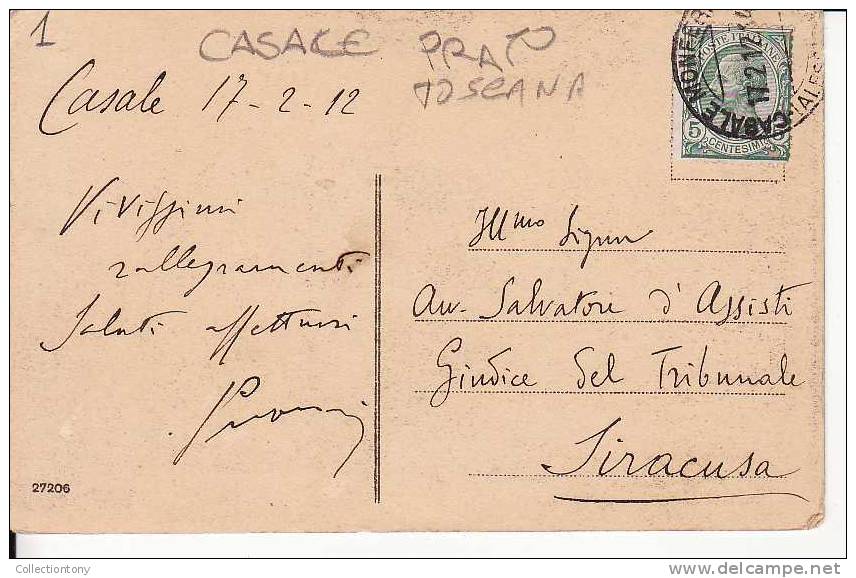 1
CASALE PRATO
TOSCANA
Casale 17-2-12
POSTE ITALIANE
5
CENTESIMI
CASALE MONFERR
17.2.12
Vivissimi
rallegramenti
Saluti affettuosi
Ill.mo Signor
Avv. Salvatore d'Assisti
Giudice del Tribunale
Siracusa
27206
Collectiontony
delcampe.net